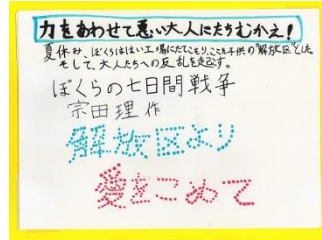 力をあわせて悪い大人にたちむかえ!
夏休み、ぼくらははい工場にたてこもり、ここを子供の"解放区"とした。
そして、大人たちへの反乱を起こす。
ぼくらの七日間戦争
宗田理 作
解放区より
愛をこめて